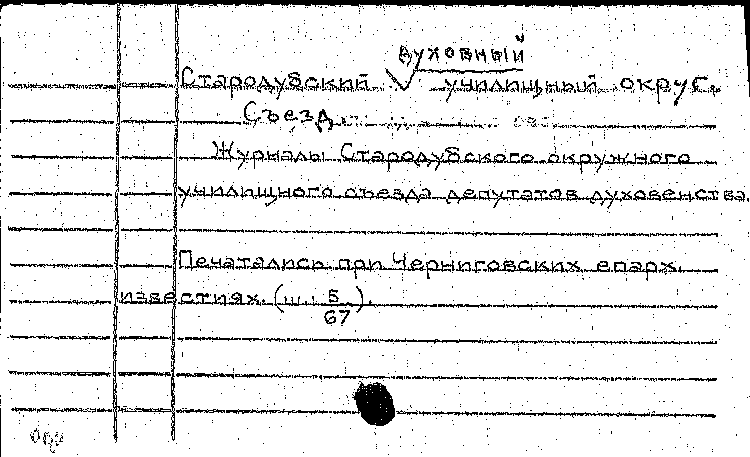 духовный
Стародубский училищный округ.
Съезд
Журналы Стародубского окружного
училищного съезда депутатов духовенства.
Печатались при Черниговских епарх.
известиях. (ш. 5/67).